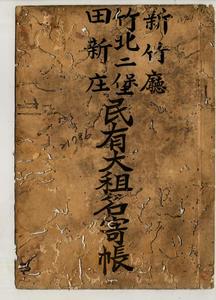 新竹廳
竹北二堡
田新庄
民有大租名寄帳